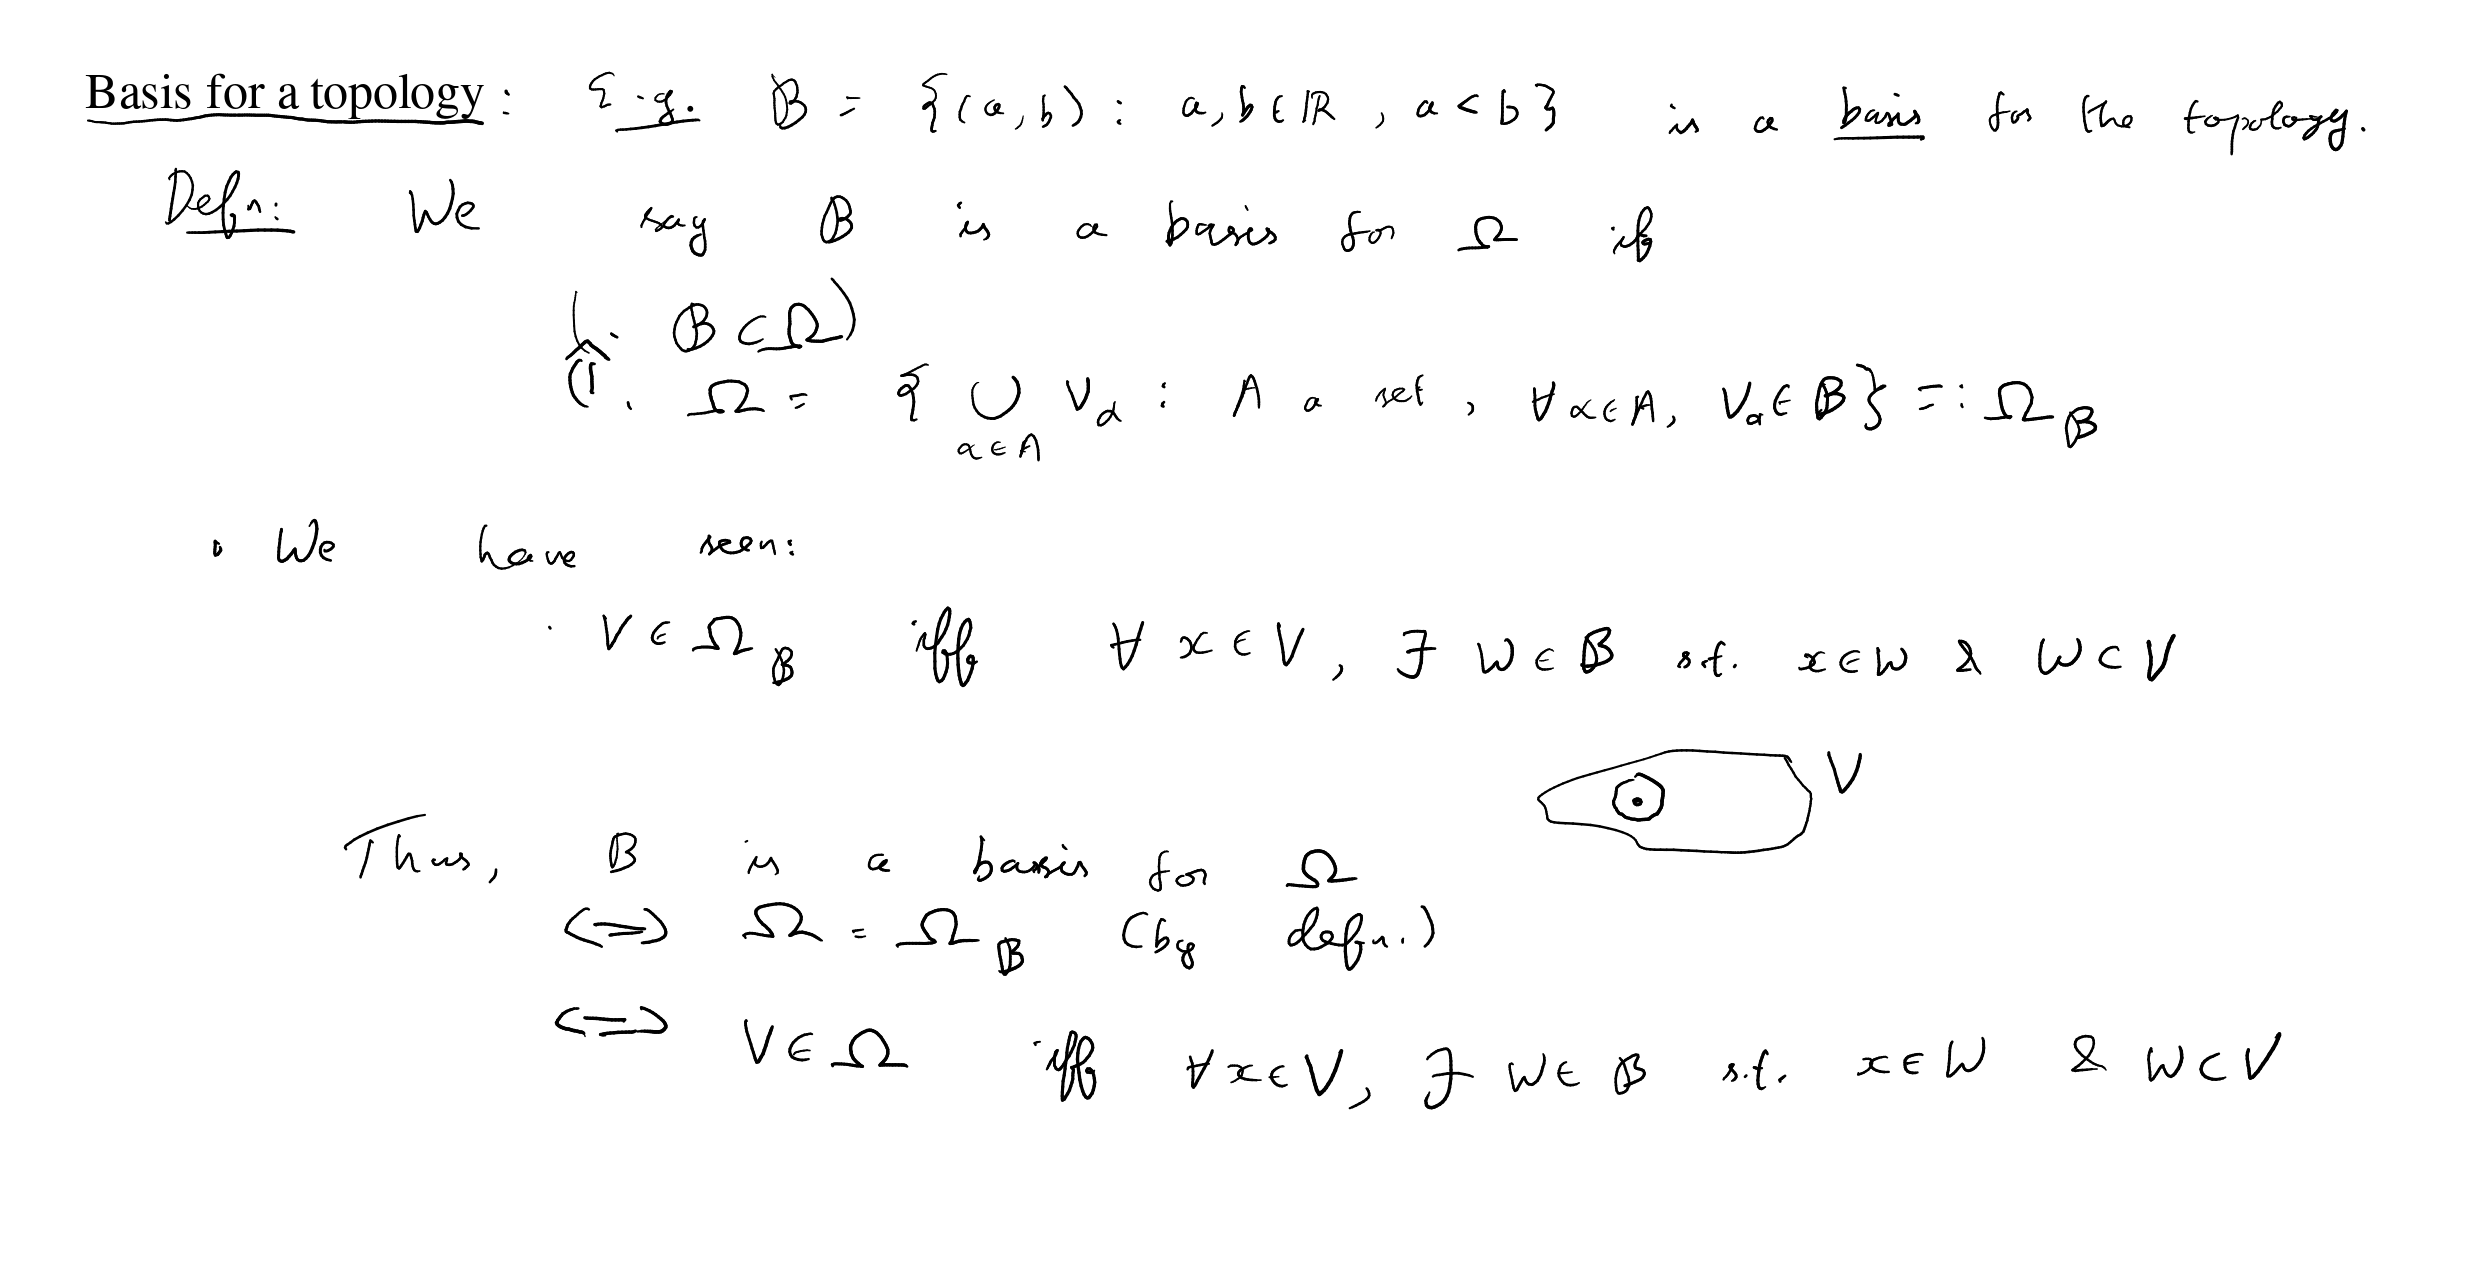 Basis for a topology : E.g. 𝔹 = {(a,b) : a,b ∈ ℝ , a < b} is a basis for the topology.
Defn: We say 𝔹 is a basis for Ω if
(i. 𝔹 ⊂ Ω)
⇑
ii. Ω = { ∪ V_α : A a set , ∀ α∈A, V_α ∈ 𝔹 } =: Ω_𝔹
α ∈ A
• We have seen:
· V ∈ Ω_𝔹 iff ∀ x ∈ V , ∃ W ∈ 𝔹 s.t. x ∈ W & W ⊂ V
V
Thus, 𝔹 is a basis for Ω
⇔ Ω = Ω_𝔹 (by defn.)
⇔ V ∈ Ω iff ∀ x ∈ V, ∃ W ∈ 𝔹 s.t. x ∈ W & W ⊂ V